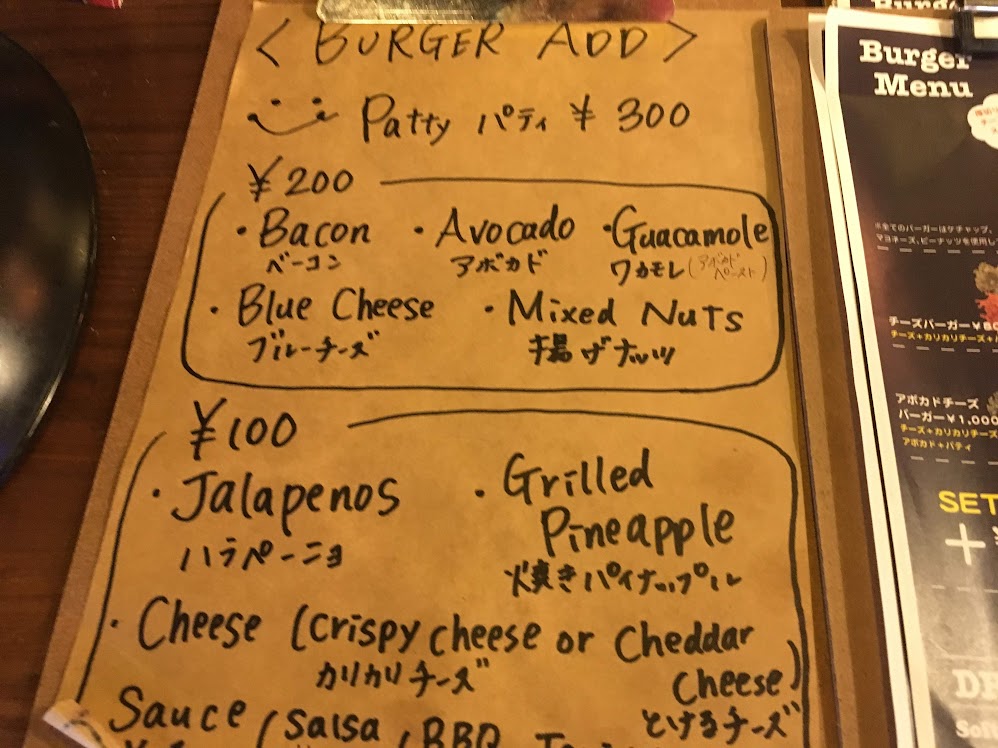 < BURGER ADD >
Patty パティ ¥300
¥200
・Bacon ・Avocado ・Guacamole
ベーコン アボカド ワカモレ(アボカドペースト)
・Blue Cheese ・Mixed Nuts
ブルーチーズ 揚げナッツ
¥100
・Jalapenos ・Grilled
Pineapple
ハラペーニョ 焼きパイナップル
・Cheese (crispy cheese or Cheddar
カリカリチーズ cheese)
とけるチーズ
Sauce (Salsa, BBQ
Burger
Menu
※全てのバーガーはケチャップ、
マヨネーズ、ピーナッツを使用し
チーズバーガー
チーズ+カリカリチーズ+
アボカドチーズ
バーガー¥1,000
チーズ+カリカリチーズ
アボカド+パティ
SET
+